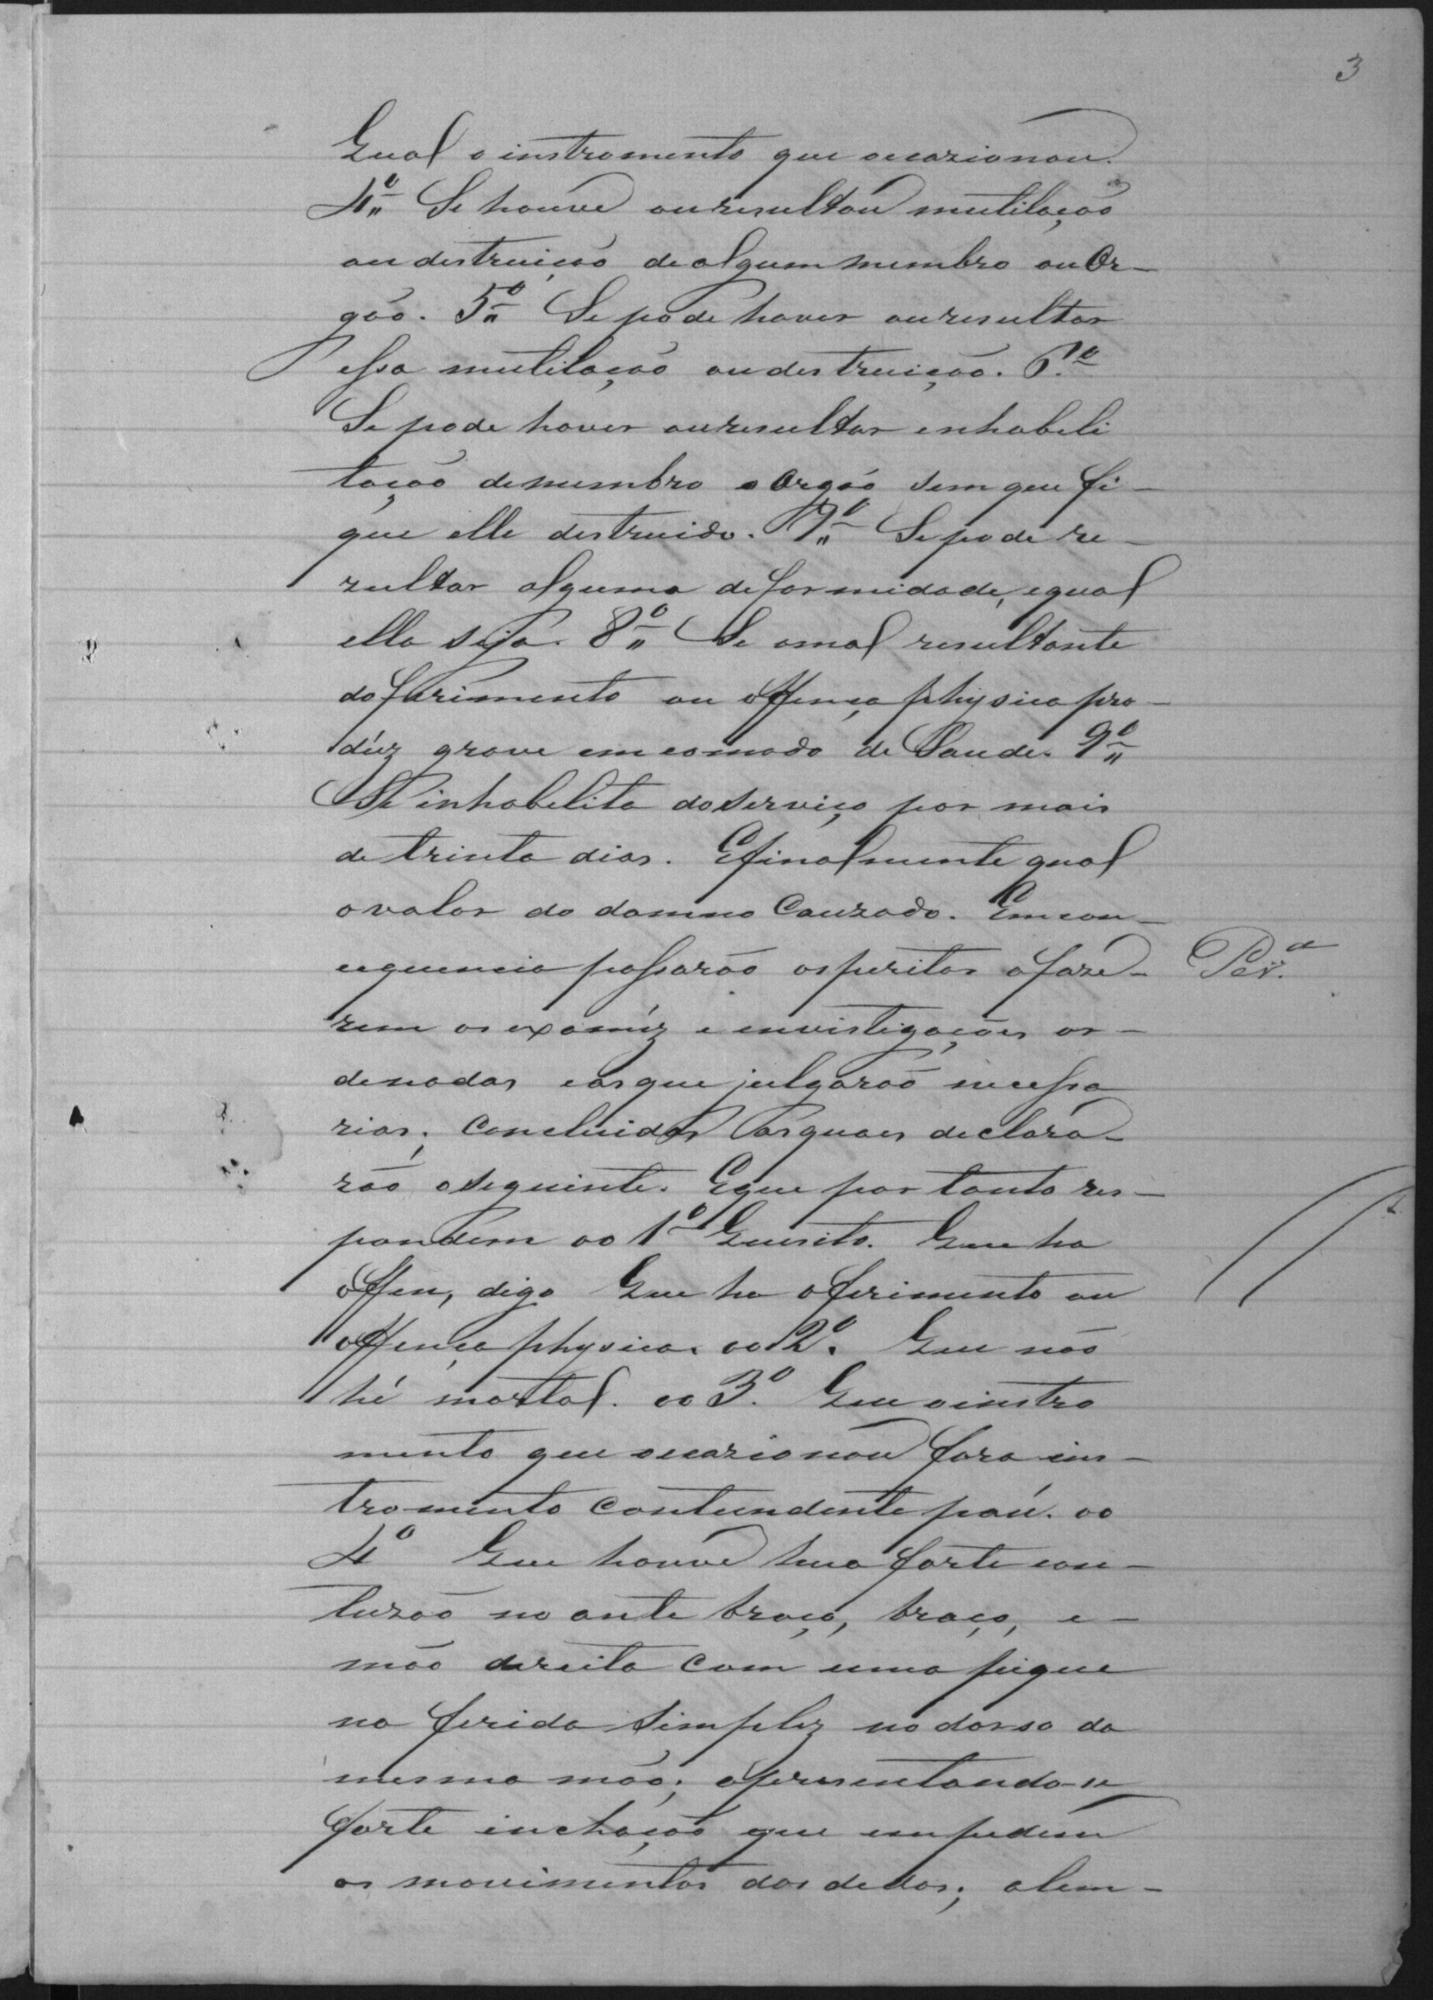 3
Qual o instromento que occazionou.
4º Se houve ou resultou mutilação
ou destruição de algum membro ou Or-
gão. 5º Se pode haver ou resultar
essa mutilação ou destruição. 6º
Se pode haver ou resultar enhabeli
tação de membro o Orgão sem que fi-
que elle destruido. 7º Se pode re-
zultar alguma deformidade, equal
ella seja. 8º Se o mal resultante
do ferimento ou offença physica pro-
dúz grave emcomodo de Saude. 9º
Se inhabelita do serviço por mais
de trinta dias. E finalmente qual
o valor do damno Cauzado. Em con-
cequencia passarão os peritos a faze-
rem os examiz e envistigações or-
denadas e as que julgarão necessa
rias; Concluidas as quaes declara-
rão o seguinte. E que por tanto res-
pondem ao 1º Quesito. Que ha
offen, digo Que ha o ferimento ou
offença physica. ao 2º. Que não
hé mortal. ao 3º. Que o instro
mento que occazionou fora ins-
tromento contundente páu. ao
4º Que houve huma forte con-
tuzão no ante braço, braço, e-
mão direita com uma peque
na ferida simpliz no dorso da
mesma mão; aprezentando-se
forte inchação que empedem
os movimentos dos dedos; alem-